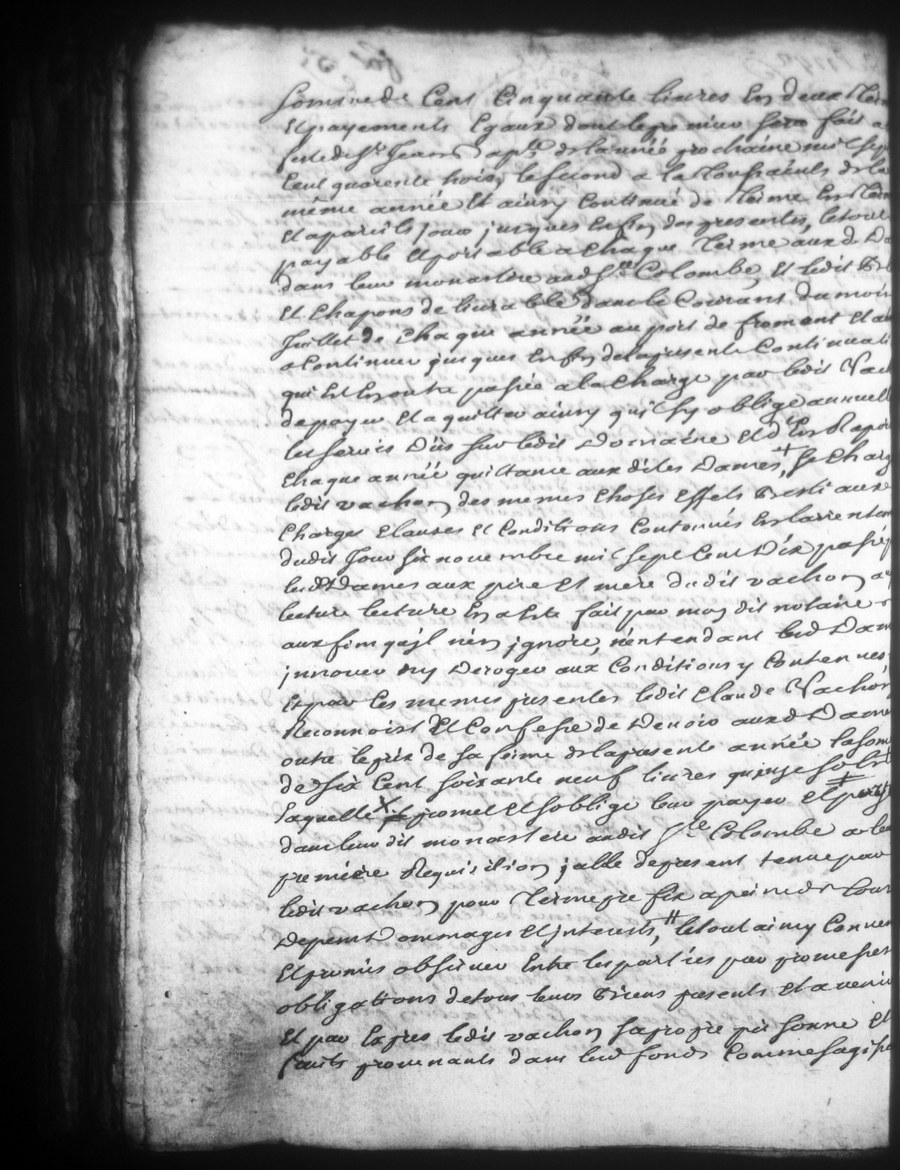 somme de Cent Cinquante livres En deux
Et payements Egaux dont le premier sera fait a
feste de St Jean dapt de lannée prochaine mil sep
Cent quarente trois, le second a la Toussaints de la
même année Et ainsy Continué de Terme En
Et apareils jours jusques Enfin des presentes, le tout
payable Et portable a Chaque Terme aux d. Da
dans leur monastere audt Ste Colombe, Et ledit
Et Chapons de livrable dans le Courant du mois
Juillet de Chaque année au port de froment Et
a Continuer jusques Enfin de la presente Continuati
qui Est En outre passée a la Charge par ledit Vach
de payer Et a quitter ainsy quil sy oblige annuell
les servis Dûs sur ledit Domaine Et dEn Rapor
Chaque année quittance aux dites Dames, + se Charg
ledit vachon des memes Choses Effets Bestiaux
Charges Clauses Et Conditions Contenues En
dudit Jour six novembre mil sept Cent Dix passé
lesd. Dames aux pere Et mere dudit vachon
lecture lecture En a Esté fait par moy dit notaire
aux fins quil nen jgnore, nentendant lesd Dam
jnnover ny Deroger aux Conditions y Contenues
Et par les memes presentes ledit Claude Vachon
Reconnoist Et Confesse de Devoir auxd Dames
outre le prix de sa ferme de la presente année la som
de six Cent soixante neuf livres quinze sols
Laquelle X il promet Et soblige leur payer Et
dans leur dit monastere audit Ste Colombe a leur
premiere Requisition
ledit vachon pour Terme prefix a peine de tous
Depens Dommages Et jnterests, # le tout ainsy Conven
Et promis observer Entre les parties par promesses
obligations de tous leurs Biens presents Et avenir
Et par Expres ledit vachon sa propre personne Et
fruits provenants dans lesd fonds Comme